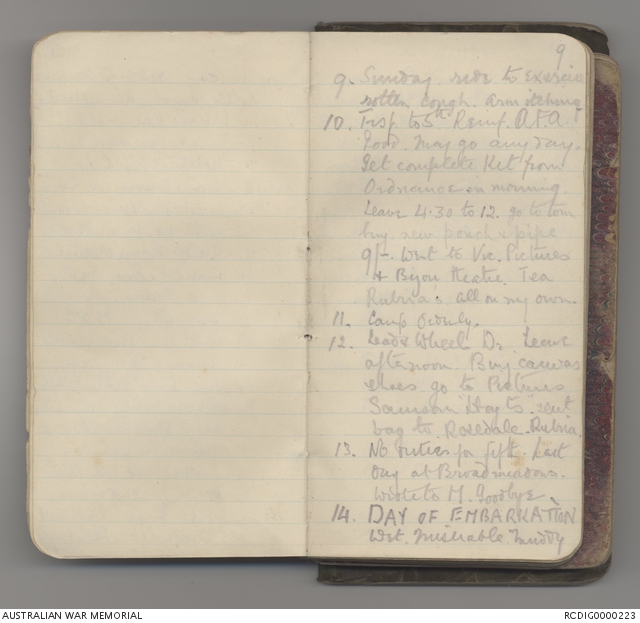 9
9. Sunday ride to exercise
rotten cough. Arm itching
10. Trsp to 5th Reinf. A.F.A.
Good. May go any day.
Get complete Kit from
Ordnance in morning
Leave 4.30 to 12. go to town
buy new pouch & pipe
9/-. Went to Vic. Pictures
& Bijou theatre. Tea
Rubria's all on my own.
11. Camp Orderly.
12. Lead & Wheel Dr. Leave
afternoon. Buy canvas
shoes go to Pictures
Samson Hoyts sent
bag to Rosedale. Rubria.
13. No duties for fifth. Last
day at Broadmeadows.
wrote to M. Goodbye
14. DAY OF EMBARKATION
Wet. Miserable. Muddy
AUSTRALIAN WAR MEMORIAL
RCDIG0000223